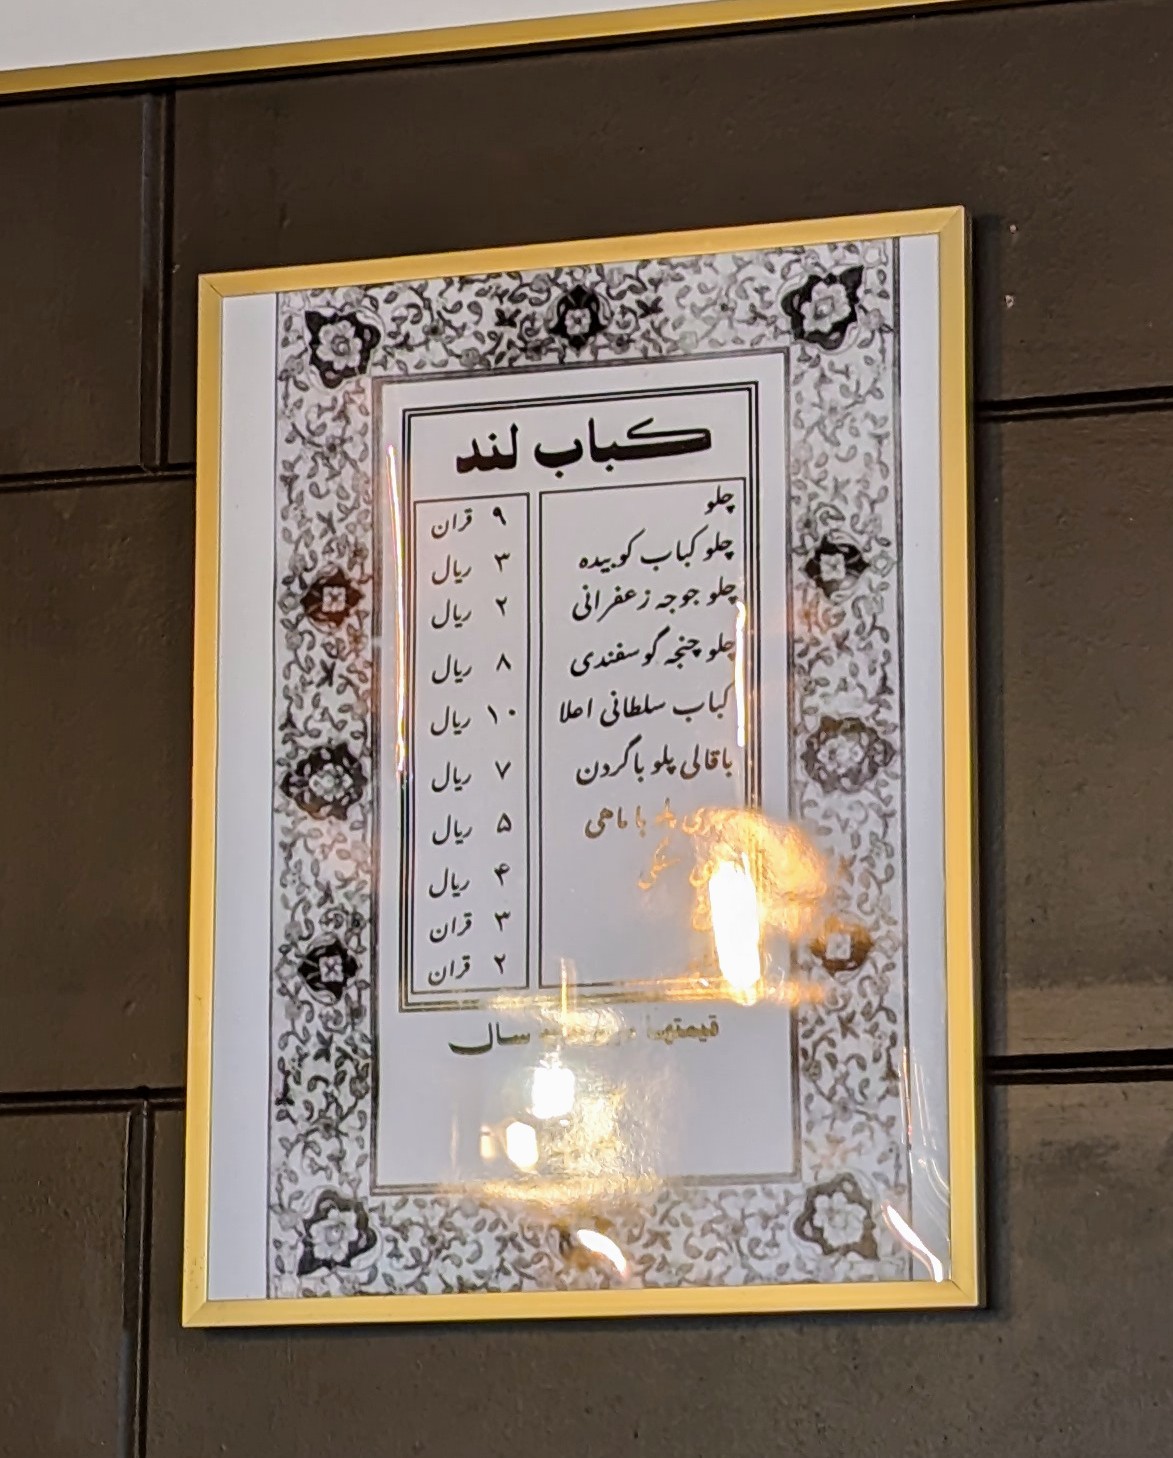 کباب لند
چلو ۹ قران
چلو کباب کوبیده ۳ ریال
چلو جوجه زعفرانی ۲ ریال
چلو چنجه گوسفندی ۸ ریال
کباب سلطانی اعلا ۱۰ ریال
باقالی پلو باگردن ۷ ریال
پلو با ماهی ۵ ریال
۴ ریال
۳ قران
۲ قران
قیمتها سال